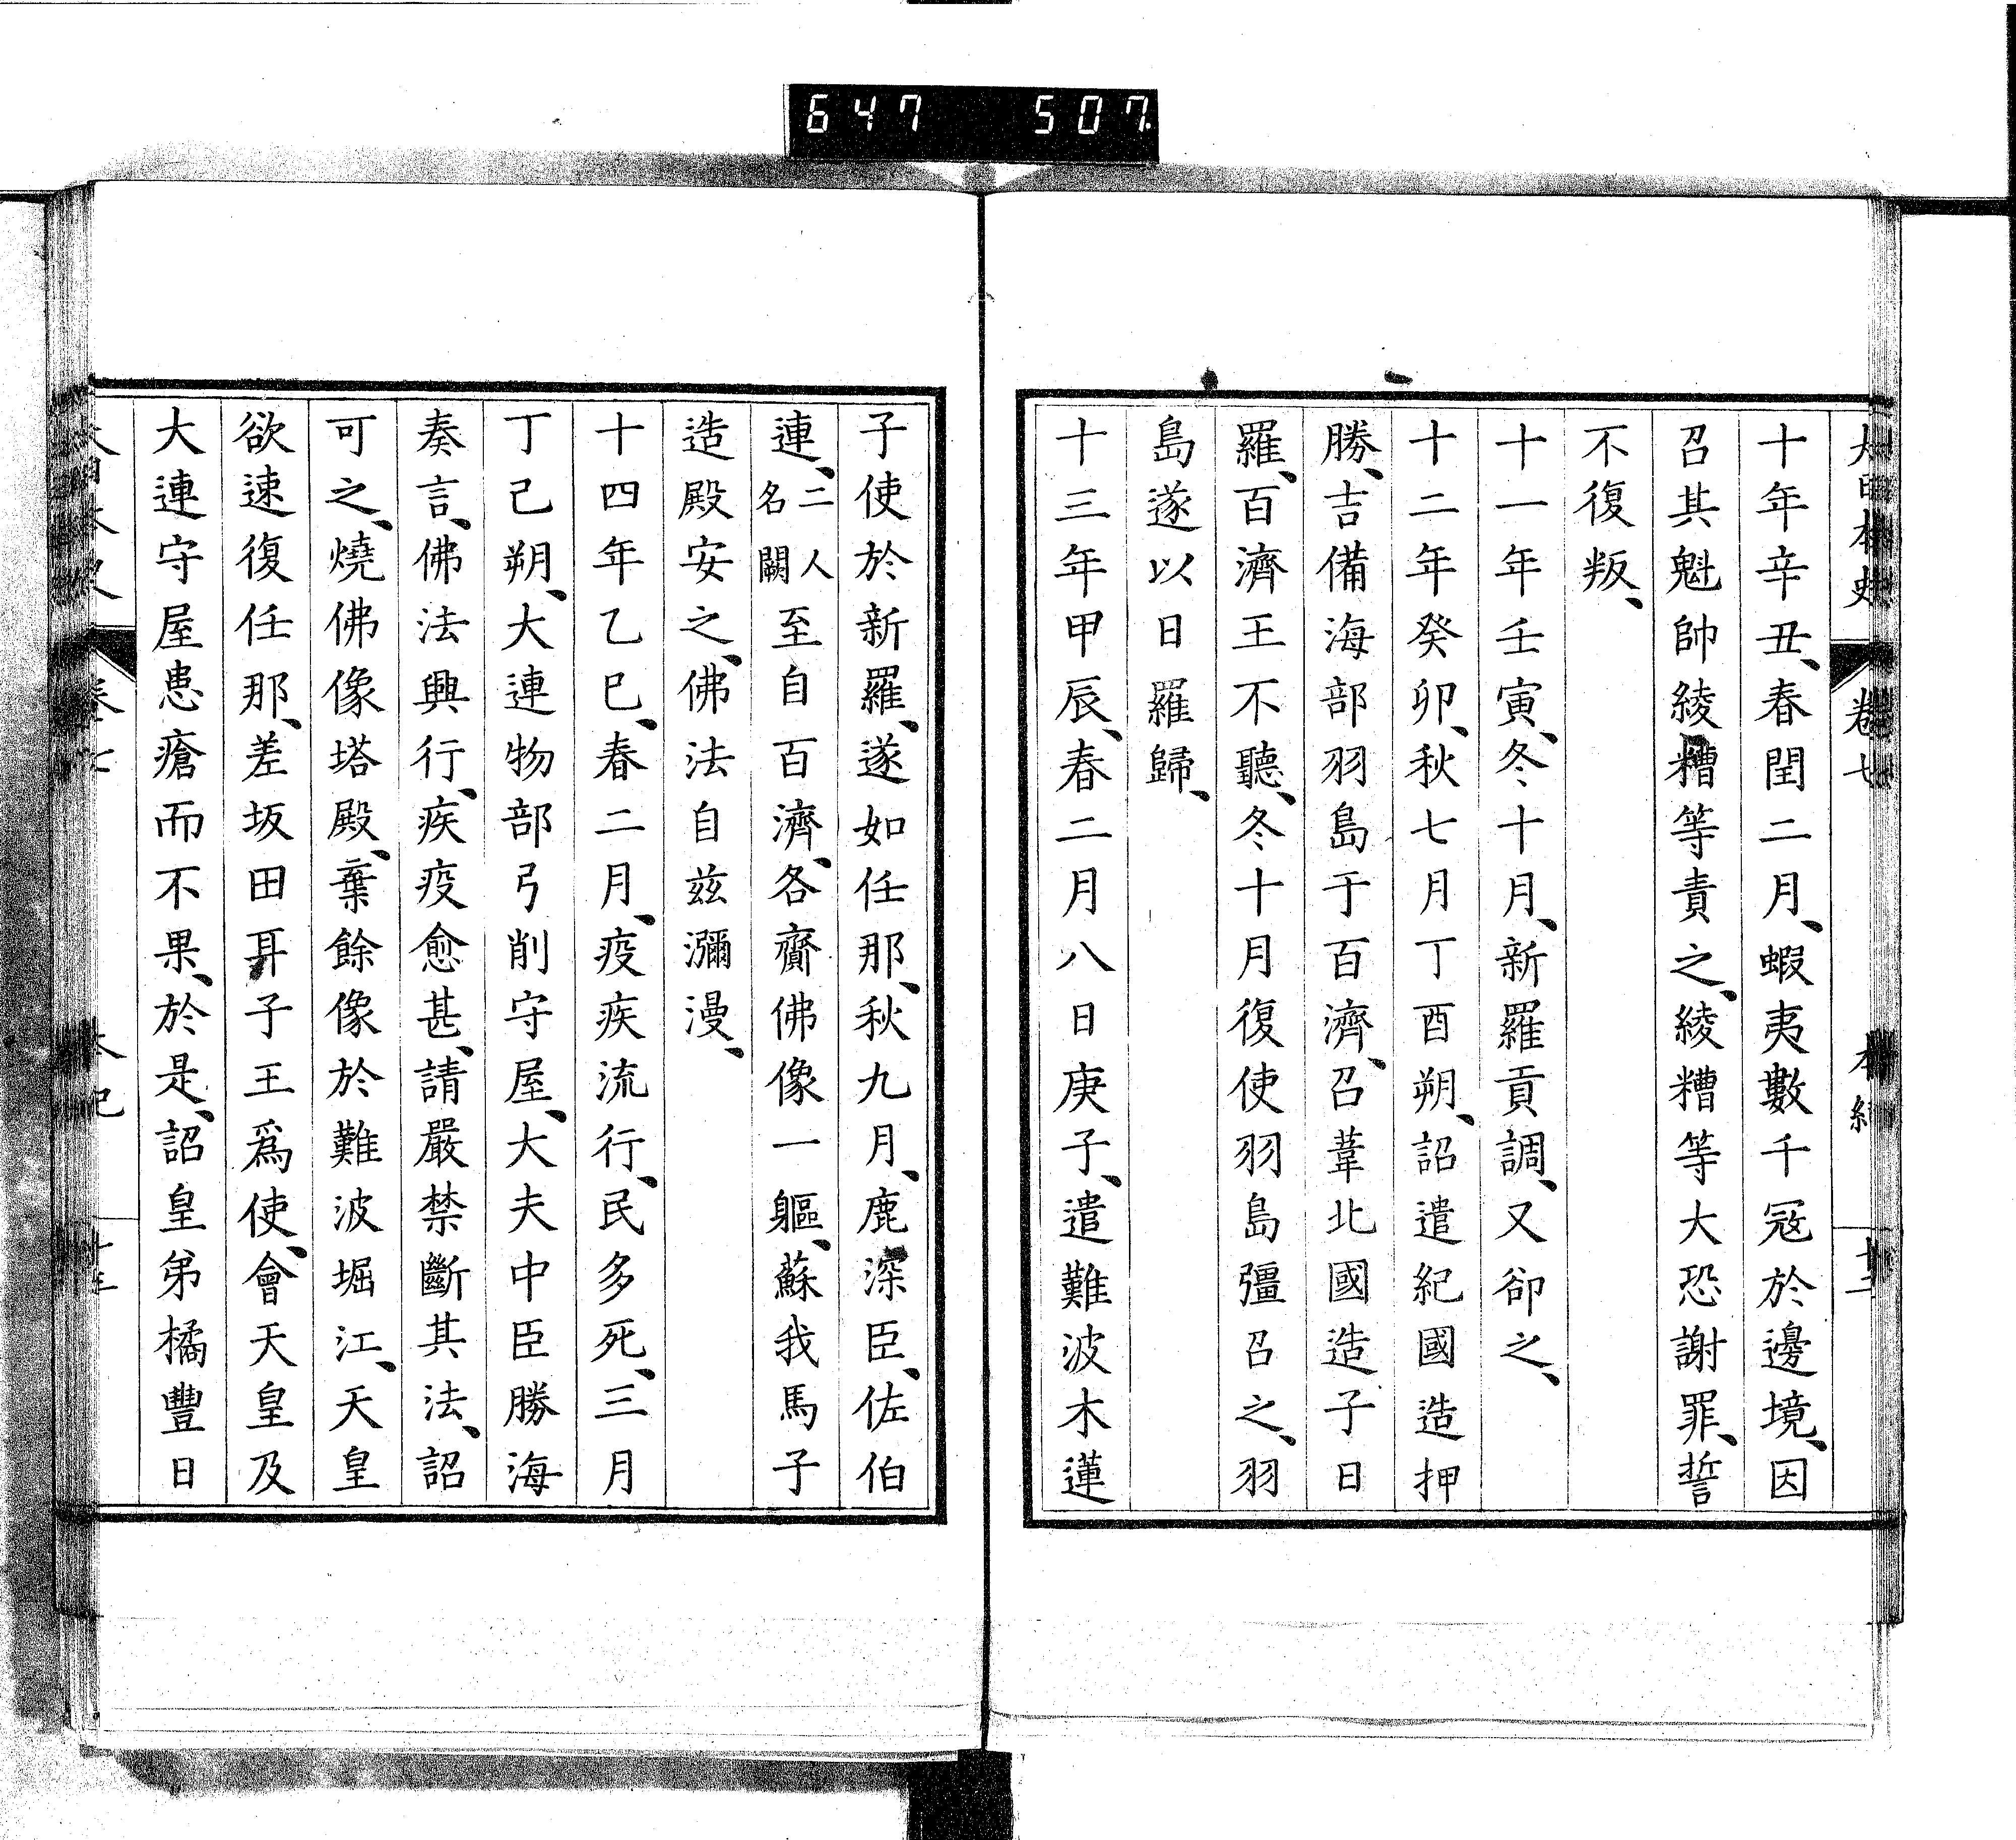 647 507.
大日本史 卷七 本紀 十二
十年辛丑、春閏二月、蝦夷數千寇於邊境、因
召其魁帥綾糟等責之、綾糟等大恐謝罪、誓
不復叛、
十一年壬寅、冬十月、新羅貢調、又卻之、
十二年癸卯、秋七月丁酉朔、詔遣紀國造押
勝、吉備海部羽島于百濟、召葦北國造子日
羅、百濟王不聽、冬十月復使羽島彊召之、羽
島遂以日羅歸、
十三年甲辰、春二月八日庚子、遣難波木蓮
子使於新羅、遂如任那、秋九月、鹿深臣、佐伯
連、二人名闕至自百濟、各齎佛像一軀、蘇我馬子
造殿安之、佛法自茲瀰漫、
十四年乙巳、春二月、疫疾流行、民多死、三月
丁己朔、大連物部弓削守屋、大夫中臣勝海
奏言、佛法興行、疾疫愈甚、請嚴禁斷其法、詔
可之、燒佛像塔殿、棄餘像於難波堀江、天皇
欲速復任那、差坂田耳子王爲使、會天皇及
大連守屋患瘡而不果、於是、詔皇弟橘豐日
大日本史 卷七 本紀 十三